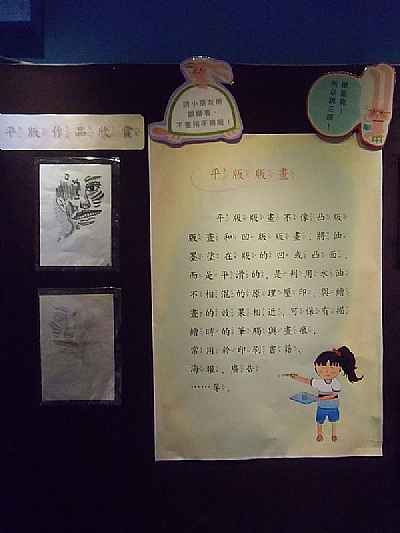 請小朋友用
眼睛看，
不要用手摸喔！
平版作品欣賞
平版版畫
平版版畫不像凸版
版畫和凹版版畫，將油
墨塗在版的凹或凸面，
而是平滑的，是利用水油
不相混的原理壓印，與繪
畫的效果相近，可保有描
繪時的筆觸與畫痕。
常用於印刷書籍、
海報、廣告
……等。